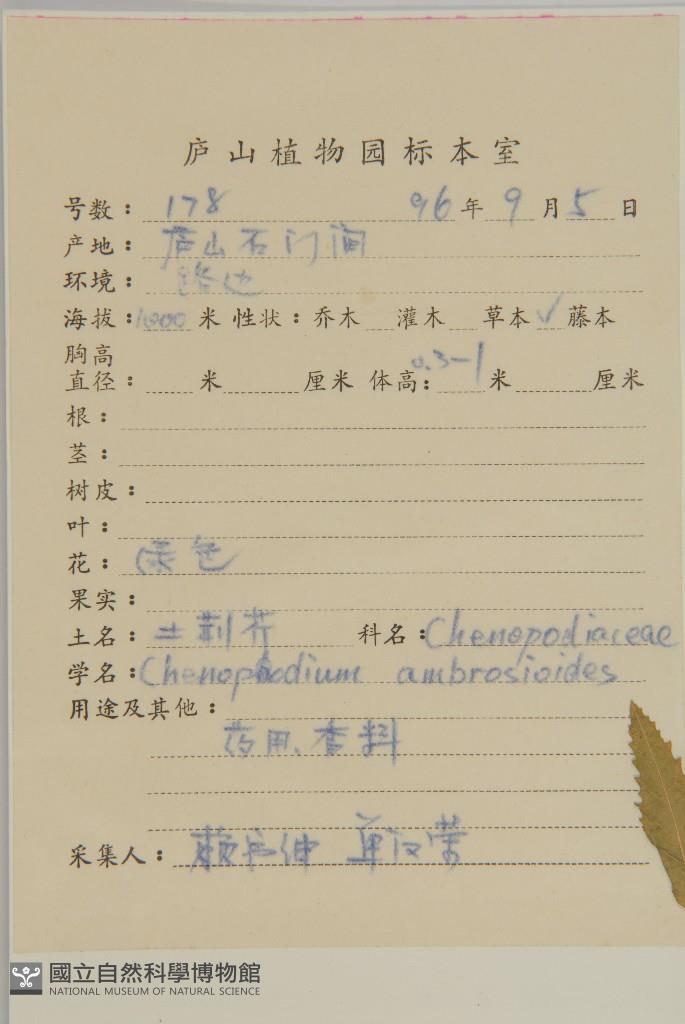 庐山植物园标本室
号数：178 96年9月5日
产地：庐山石门涧
环境：路边
海拔：1000米 性状：乔木 灌木 草本√藤本
胸高
直径： 米 厘米 体高：0.3-1米 厘米
根：
茎：
树皮：
叶：
花：绿色
果实：
土名：土荆芥 科名：Chenopodiaceae
学名：Chenophodium ambrosioides
用途及其他：
药用、香料
采集人：赖书绅 单汉荣
國立自然科學博物館
NATIONAL MUSEUM OF NATURAL SCIENCE